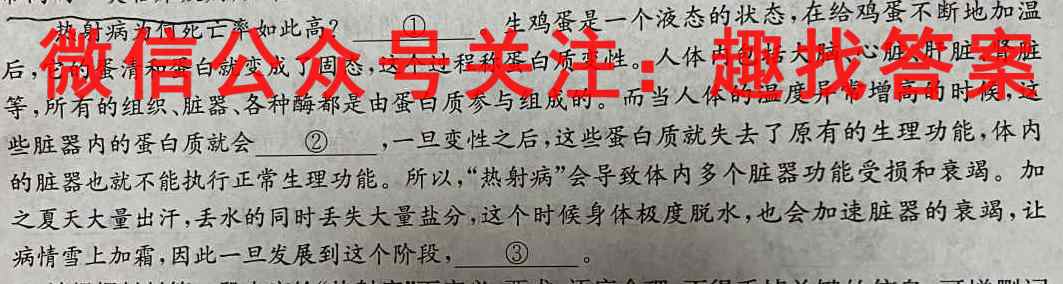 热射病为何死亡率如此高? ① 生鸡蛋是一个液态的状态,在给鸡蛋不断地加温
微信公众号关注:趣找答案
后,它的蛋清和蛋白就变成了固态,这个过程称蛋白质变性。人体内包括大脑、心脏、肝脏、肾脏
等,所有的组织、脏器、各种酶都是由蛋白质参与组成的。而当人体的温度异常增高的时候,这
些脏器内的蛋白质就会 ② ,一旦变性之后,这些蛋白质就失去了原有的生理功能,体内
的脏器也就不能执行正常生理功能。所以,“热射病”会导致体内多个脏器功能受损和衰竭。加
之夏天大量出汗,丢水的同时丢失大量盐分,这个时候身体极度脱水,也会加速脏器的衰竭,让
病情雪上加霜,因此一旦发展到这个阶段, ③ 。